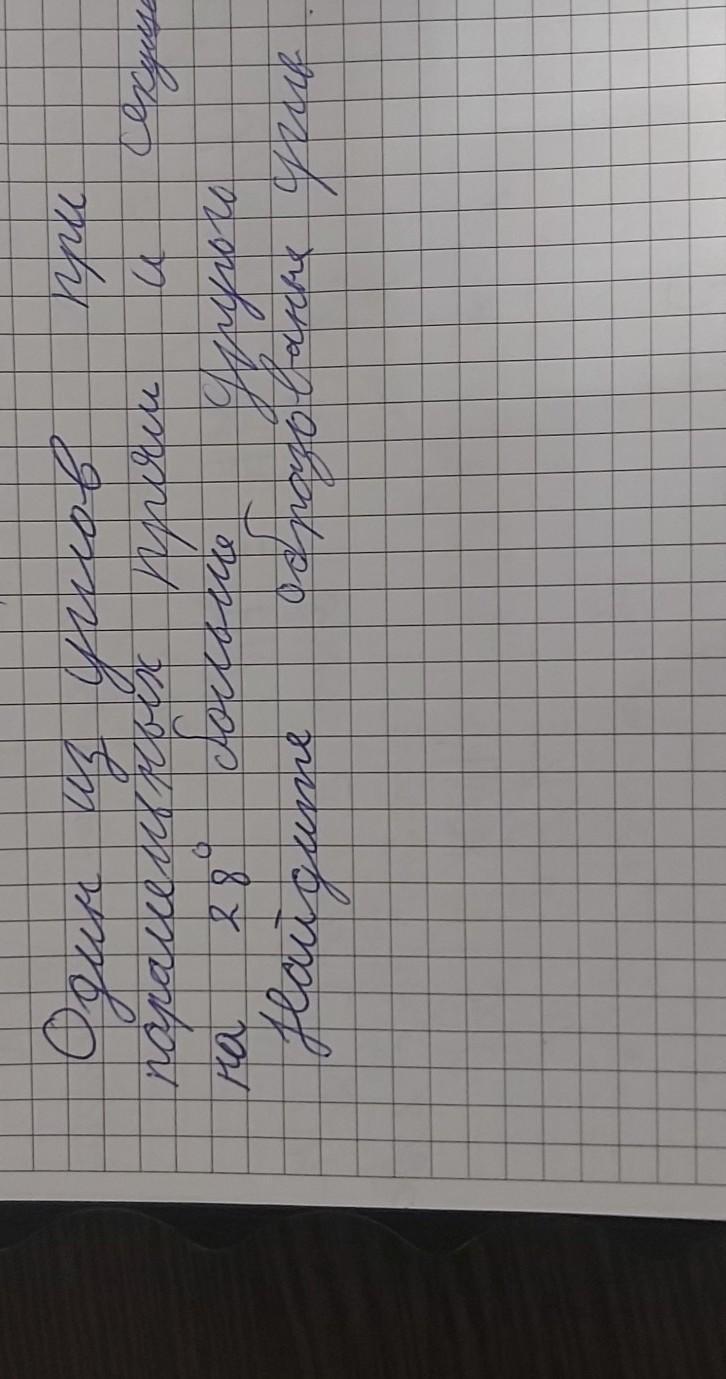 Один из углов при
паралельных прям и секуще
на 28° больше другого
Найдите образованые угив.